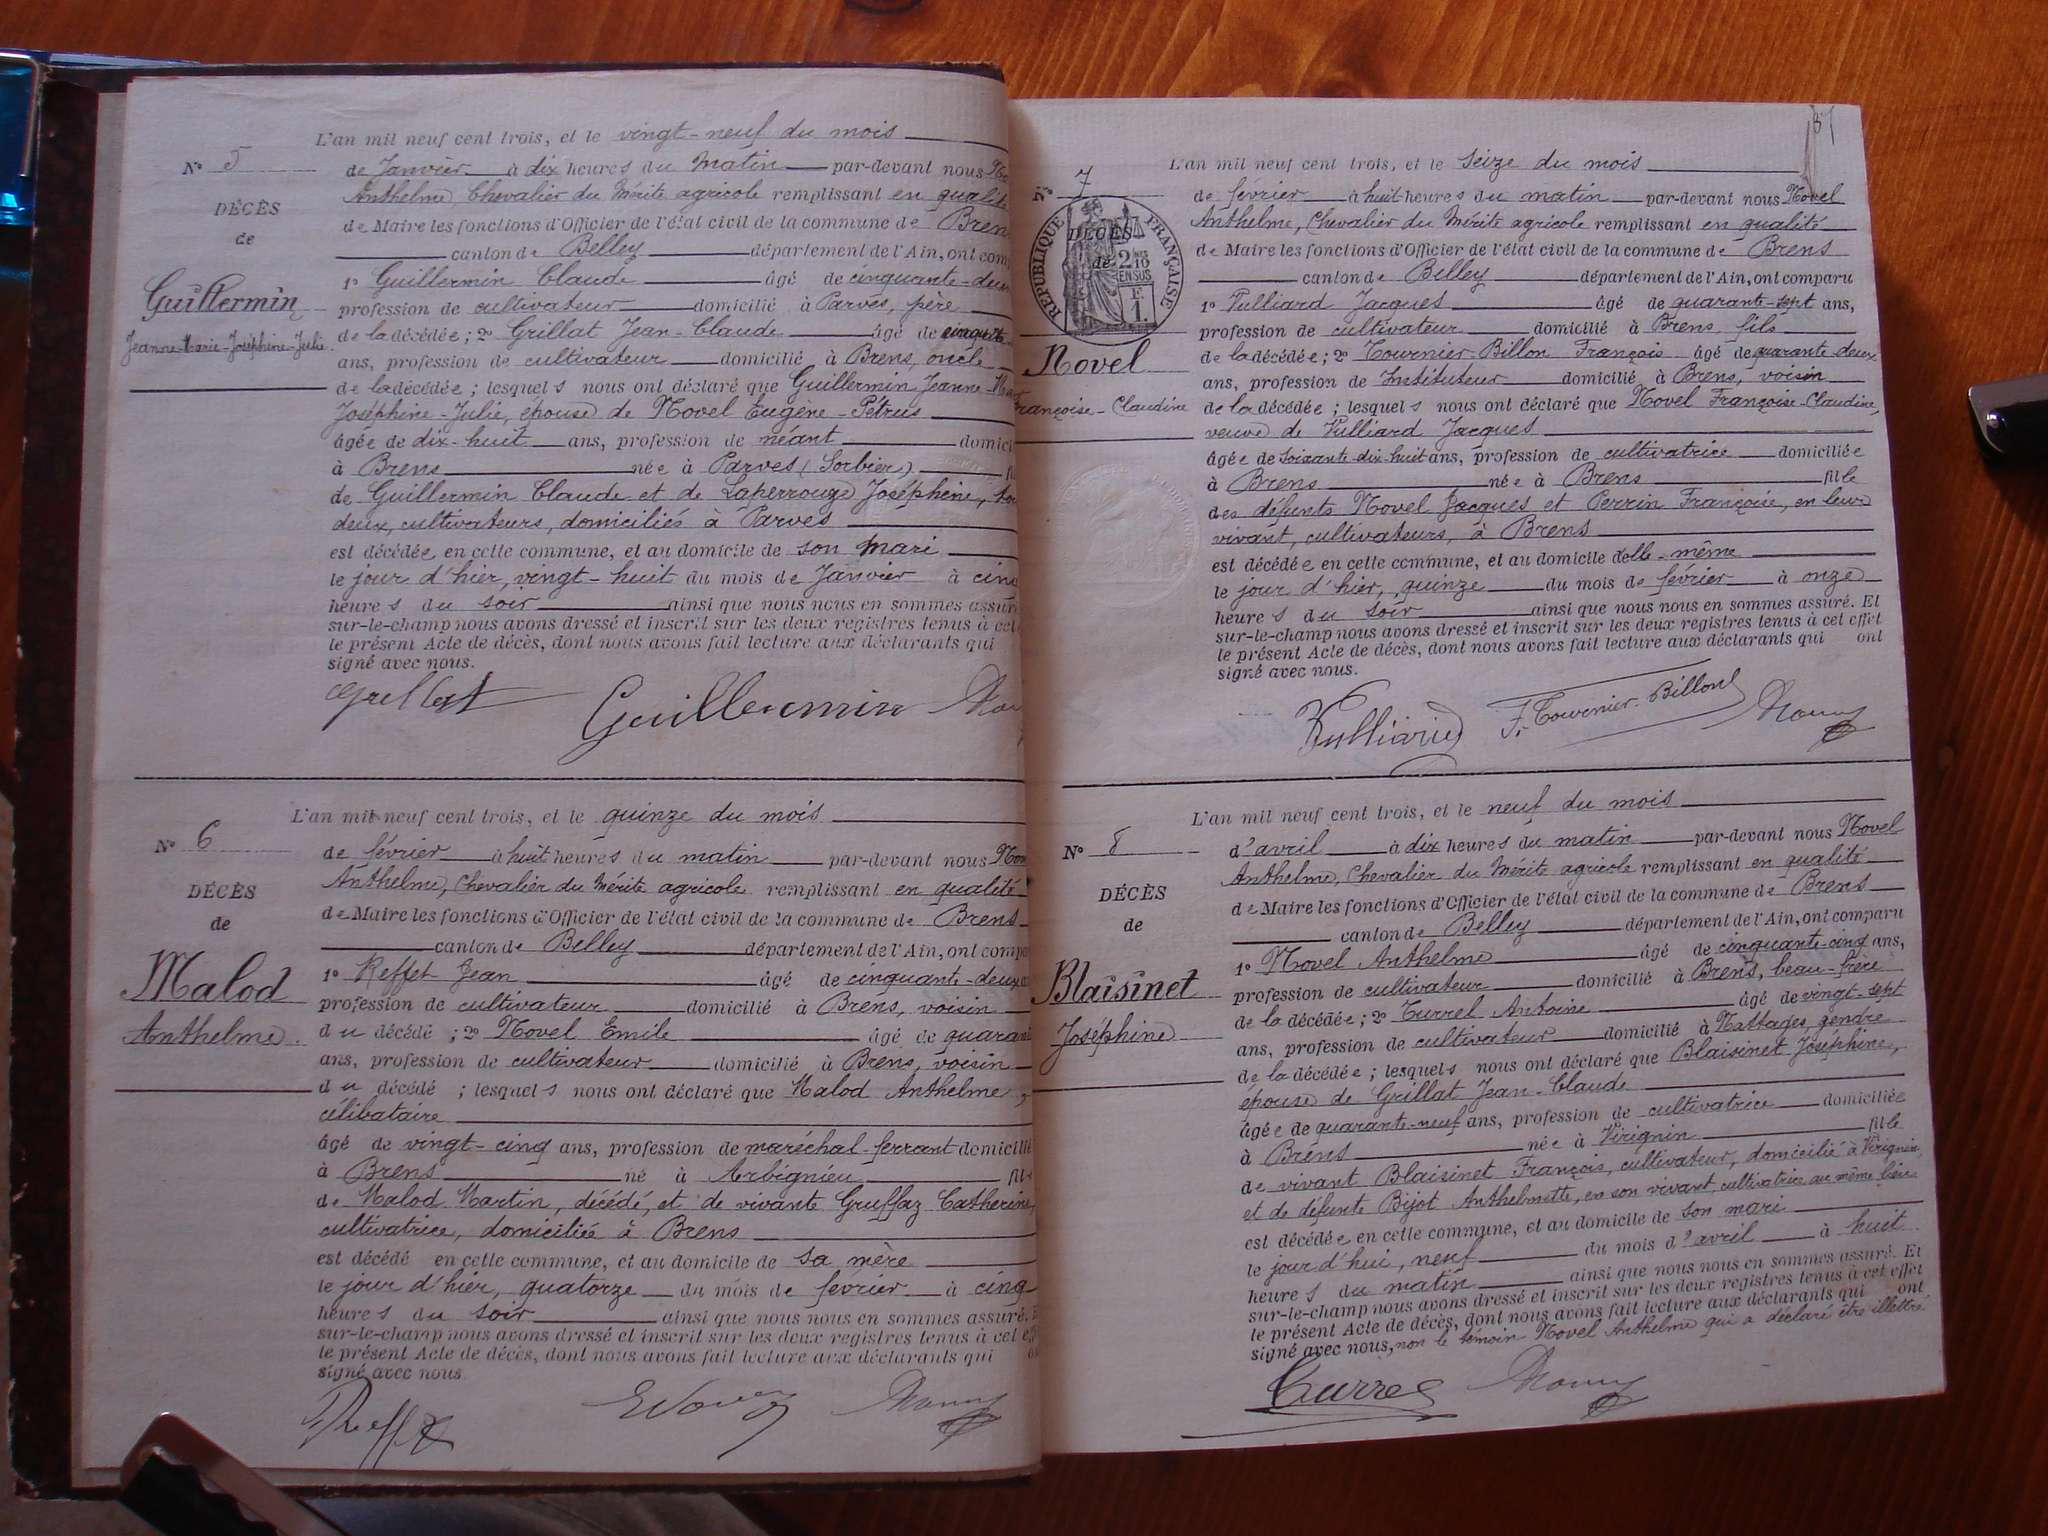 L'an mil neuf cent trois, et le vingt-neuf du mois
N° 5
de Janvier à dix heures du Matin par-devant nous
Anthelme Chevalier du Mérite agricole remplissant en qualité
DÉCÈS
de Maire les fonctions d'Officier de l'état civil de la commune de Brens
de
canton de Belley département de l'Ain, ont
1° Guillermin Claude âgé de cinquante-deux
Guillermin
profession de cultivateur domicilié à Parves, père
Jeanne-Marie-Joséphine-Julie
de la décédée; 2° Grillat Jean-Claude âgé de
ans, profession de cultivateur domicilié à Brens, oncle
de la décédée; lesquels nous ont déclaré que Guillermin Jeanne
Joséphine-Julie, épouse de Novel Eugène-Pétrus
âgée de dix-huit ans, profession de néant
à Brens née à Parves (Sorbier)
de Guillermin Claude et de Laperrouze Joséphine,
deux, cultivateurs, domiciliés à Parves
est décédée en cette commune, et au domicile de son mari
le jour d'hier, vingt-huit du mois de Janvier à
heures du soir ainsi que nous nous en sommes
sur-le-champ nous avons dressé et inscrit sur les deux registres tenus à
le présent Acte de décès, dont nous avons fait lecture aux déclarants qui
signé avec nous.
Guillermin
L'an mil neuf cent trois, et le quinze du mois
N° 6
de février à huit heures du matin par-devant nous
Anthelme, Chevalier du Mérite agricole remplissant en qualité
DÉCÈS
de Maire les fonctions d'Officier de l'état civil de la commune de Brens
de
canton de Belley département de l'Ain, ont
1° Reffet Jean âgé de cinquante-deux
Malod
profession de cultivateur domicilié à Brens, voisin
Anthelme
du décédé; 2° Novel Emile âgé de
ans, profession de cultivateur domicilié à Brens, voisin
du décédé; lesquels nous ont déclaré que Malod Anthelme,
célibataire
âgé de vingt-cinq ans, profession de maréchal-ferrant domicilié
à Brens né à Arbignieu fils
de Malod Martin, décédé, et de vivante Gruffaz Catherine,
cultivatrice, domiciliée à Brens
est décédé en cette commune, et au domicile de sa mère
le jour d'hier, quatorze du mois de février à cinq
heures du soir ainsi que nous nous en sommes assuré.
sur-le-champ nous avons dressé et inscrit sur les deux registres tenus à cet
le présent Acte de décès, dont nous avons fait lecture aux déclarants qui
signé avec nous
L'an mil neuf cent trois, et le seize du mois
N° 7
de février à huit heures du matin par-devant nous Novel
Anthelme, Chevalier du Mérite agricole remplissant en qualité
RÉPUBLIQUE FRANÇAISE
DÉCÈS
de
de Maire les fonctions d'Officier de l'état civil de la commune de Brens
canton de Belley département de l'Ain, ont comparu
1° Vulliard Jacques âgé de quarante-sept ans,
profession de cultivateur domicilié à Brens, fils
Novel
de la décédée; 2° Tournier-Billon François âgé de quarante-deux
ans, profession de Instituteur domicilié à Brens, voisin
Françoise-Claudine
de la décédée; lesquels nous ont déclaré que Novel Françoise-Claudine,
veuve de Vulliard Jacques
âgée de soixante-dix-huit ans, profession de cultivatrice domiciliée
à Brens née à Brens fille
des défunts Novel Jacques et Perrin Françoise, en leur
vivant, cultivateurs, à Brens
est décédée en cette commune, et au domicile d'elle-même
le jour d'hier, quinze du mois de février à onze
heures du soir ainsi que nous nous en sommes assuré. Et
sur-le-champ nous avons dressé et inscrit sur les deux registres tenus à cet effet
le présent Acte de décès, dont nous avons fait lecture aux déclarants qui ont
signé avec nous.
Vulliard F. Tournier-Billon
L'an mil neuf cent trois, et le neuf du mois
N° 8
d'avril à dix heures du matin par-devant nous Novel
Anthelme, Chevalier du Mérite agricole remplissant en qualité
DÉCÈS
de Maire les fonctions d'Officier de l'état civil de la commune de Brens
de
canton de Belley département de l'Ain, ont comparu
1° Novel Anthelme âgé de cinquante-cinq ans,
Blaisinet
profession de cultivateur domicilié à Brens, beau-frère
Joséphine
de la décédée; 2° Turrel Antoine âgé de vingt-sept
ans, profession de cultivateur domicilié à Nattages, gendre
de la décédée; lesquels nous ont déclaré que Blaisinet Joséphine,
épouse de Grillat Jean-Claude
âgée de quarante-neuf ans, profession de cultivatrice domiciliée
à Brens née à Virignin fille
de vivant Blaisinet François, cultivateur, domicilié à Virignin,
et de défunte Bijot Anthelmette, en son vivant, cultivatrice au même lieu
est décédée en cette commune, et au domicile de son mari
le jour d'hui, neuf du mois d'avril à huit
heures du matin ainsi que nous nous en sommes assuré. Et
sur-le-champ nous avons dressé et inscrit sur les deux registres tenus à cet effet
le présent Acte de décès, dont nous avons fait lecture aux déclarants qui ont
signé avec nous, non le témoin Novel Anthelme qui a déclaré être illettré.
Turrel